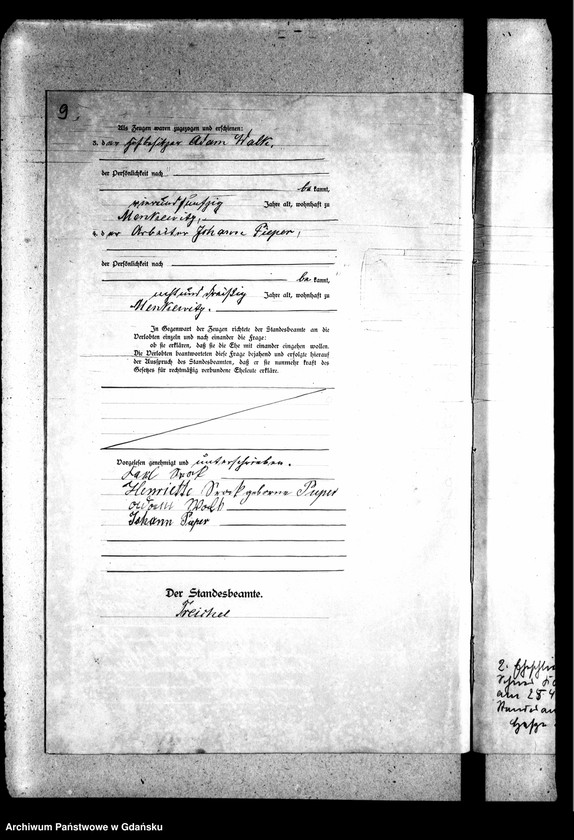 9.
Als Zeugen waren zugezogen und erschienen:
3. der Hofbesitzer Adam Walk,
der Persönlichkeit nach
be kannt,
vierundfünfzig Jahre alt, wohnhaft zu
Menkewitz,
4. der Arbeiter Johann Pieper,
der Persönlichkeit nach
be kannt,
achtunddreißig Jahre alt, wohnhaft zu
Menkewitz.
In Gegenwart der Zeugen richtete der Standesbeamte an die
Verlobten einzeln und nach einander die Frage:
ob sie erklären, daß sie die Ehe mit einander eingehen wollen.
Die Verlobten beantworteten diese Frage bejahend und erfolgte hierauf
der Ausspruch des Standesbeamten, daß er sie nunmehr kraft des
Gesetzes für rechtmäßig verbundene Eheleute erkläre.
Vorgelesen genehmigt und unterschrieben.
Karl
Henriette geborne Pieper
Adam Walk
Johann Pieper
Der Standesbeamte.
Treichel
2.
am 25 4
Standesam
Archiwum Państwowe w Gdańsku